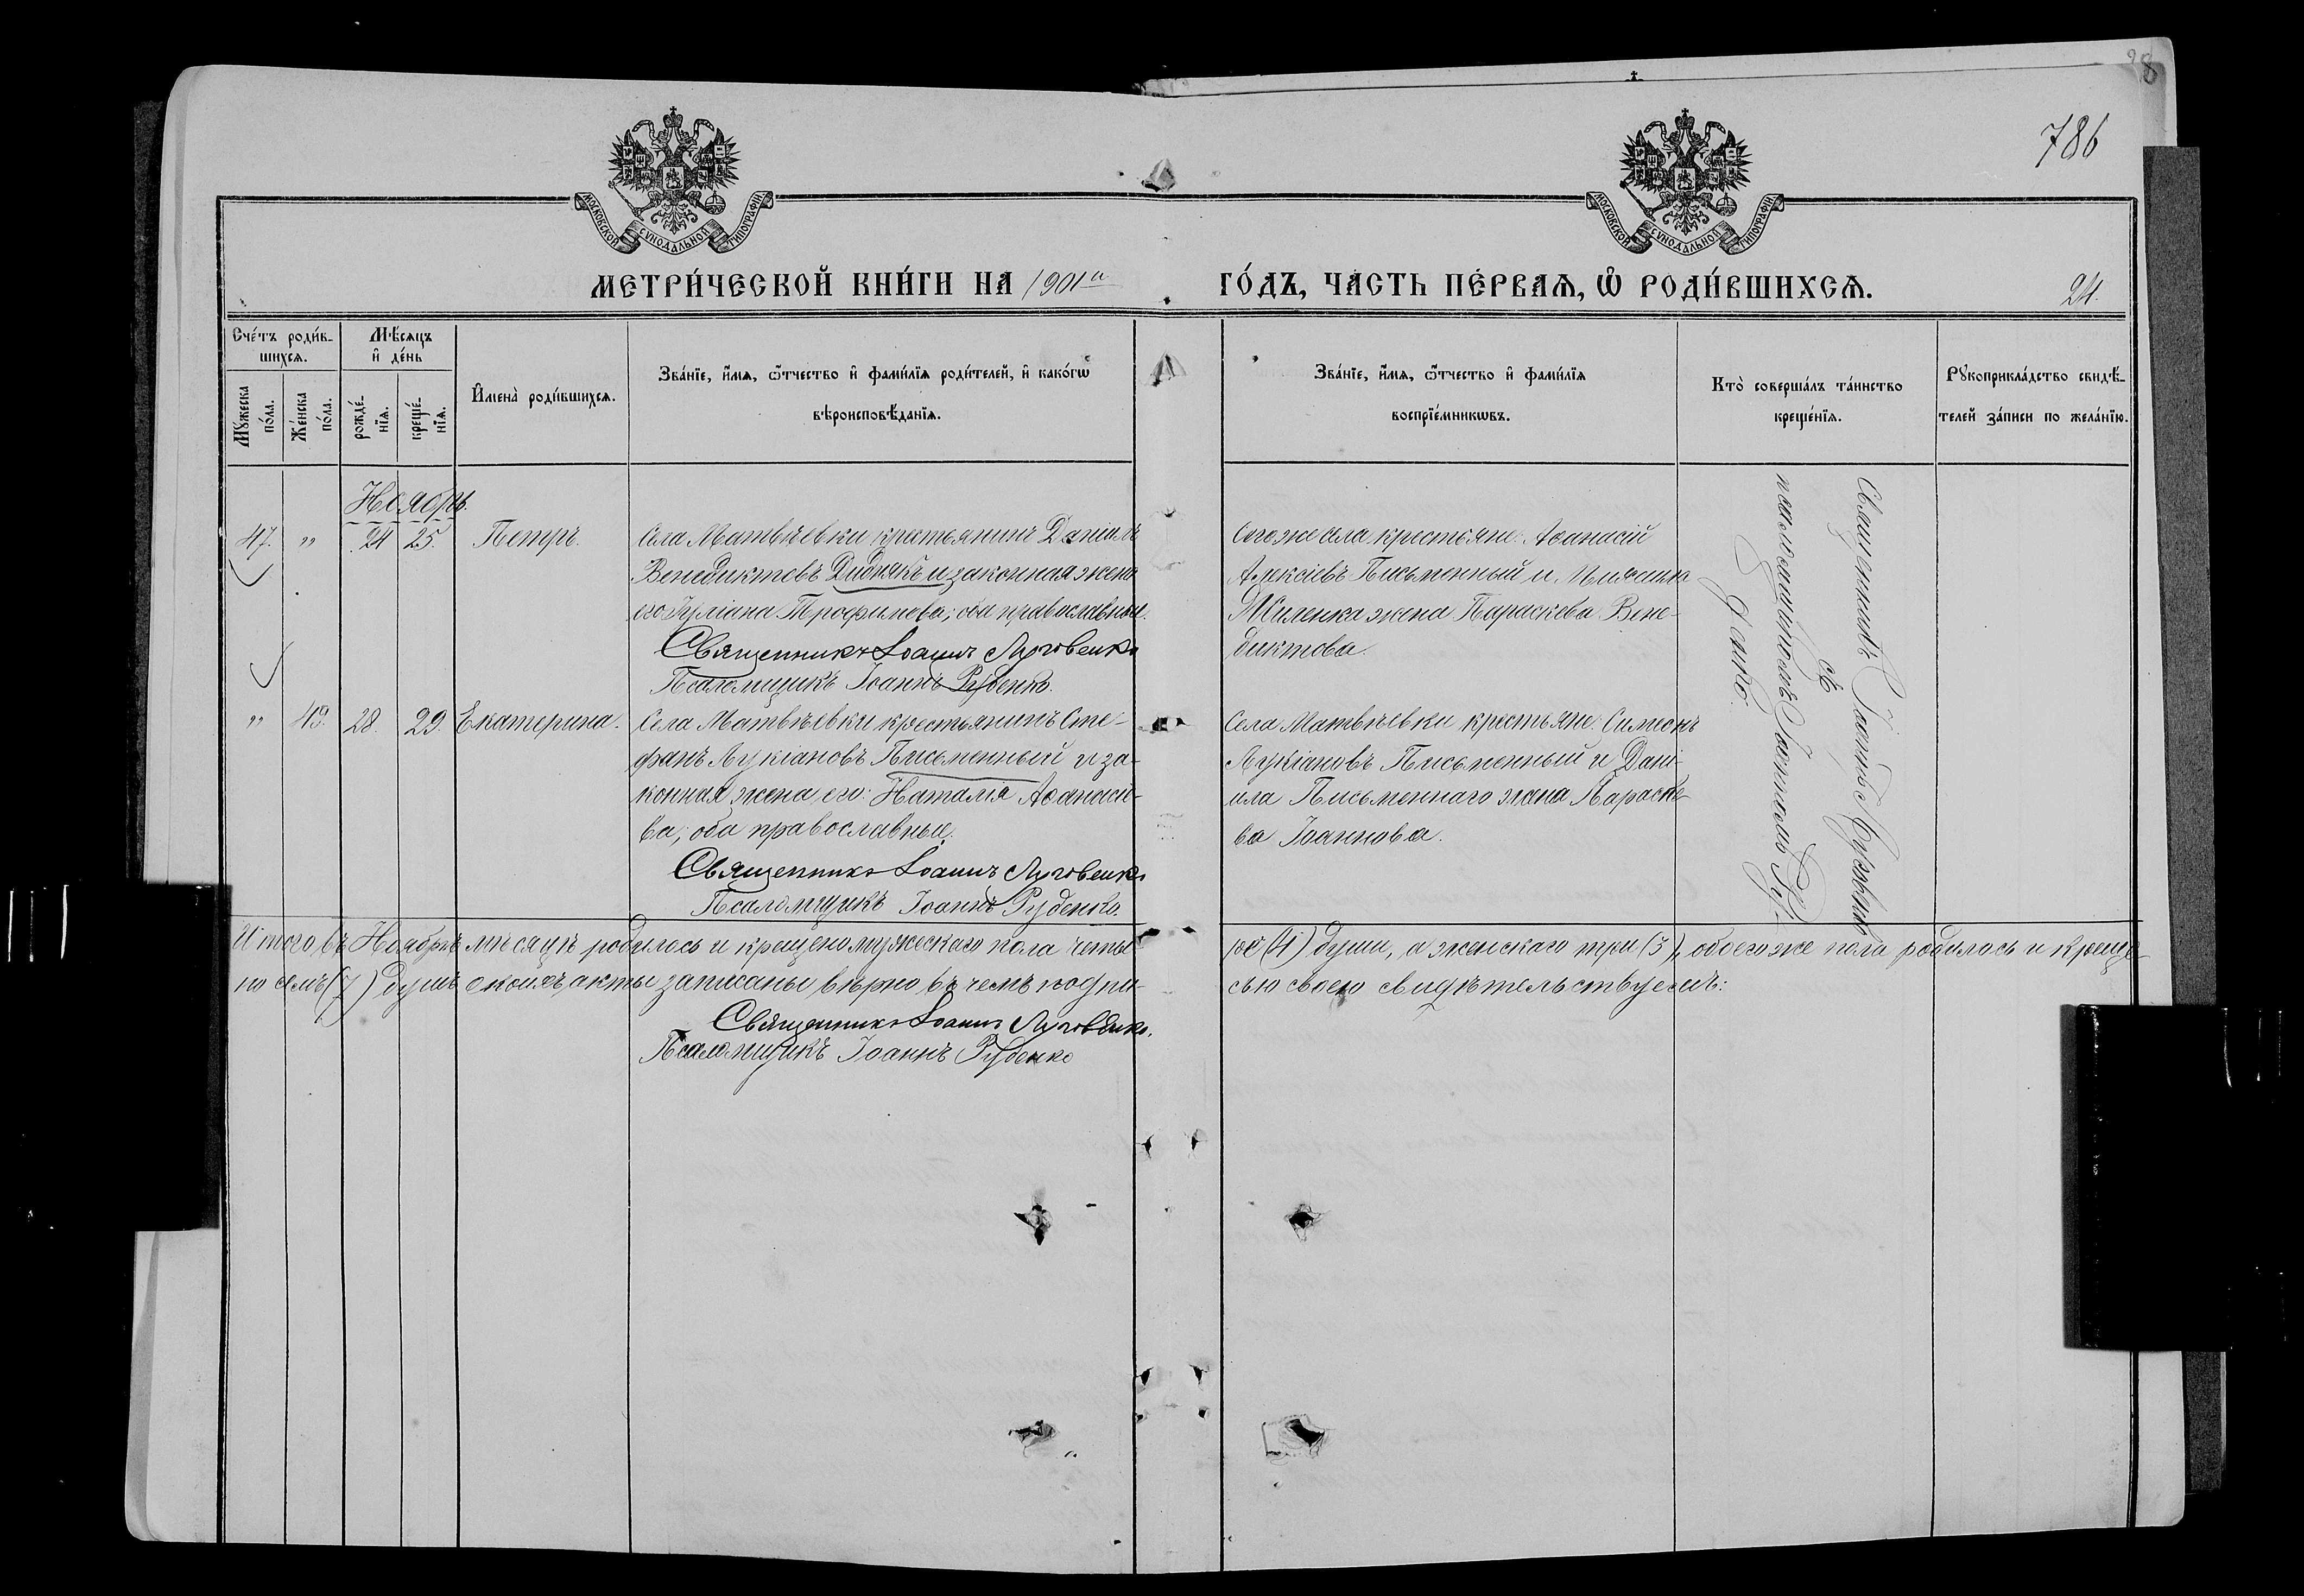 28
786
МОСКОВСКОЙ СѴНОДАЛЬНОЙ ТИПОГРАФІИ
МОСКОВСКОЙ СѴНОДАЛЬНОЙ ТИПОГРАФІИ
МЕТРИ́ЧЕСКОЙ КНИ́ГИ НА 1901й
ГО́ДЪ, ЧА́СТЬ ПЕ́РВАѦ, Ѽ РОДИ́ВШИХСѦ.
24.
Сче́тъ роди́в-
шихсѧ.
Мѣ́сяцъ
и҆ де́нь
Мꙋ́жеска
по́ла.
Же́нска
по́ла.
рожде́-
нїѧ.
креще́-
нїѧ.
И҆мена̀ роди́вшихсѧ.
Зва́нїе, и҆́мѧ, ѻ҆́тчество и҆ фами́лїѧ роди́телей, и҆ како́гѡ
вѣроисповѣ́данїѧ.
Зва́нїе, и҆́мѧ, ѻ҆́тчество и҆ фами́лїѧ
воспрїе́мникѡвъ.
Кто̀ соверша́лъ та́инство
креще́нїѧ.
Рꙋкоприкла́дство свидѣ́-
телей за́писи по жела́нїю.
Ноябрь.
47. " 24 25. Петръ.
Села Матвѣевки крестьянинъ Даніилъ
Венедиктовъ Дидникъ и законная жена
его Іуліана Трофимова; оба православные.
Священникъ Іоаннъ Луговенко
Псаломщикъ Іоаннъ Руденко.
Того же села крестьяне: Аѳанасій
Алексіевъ Письменный и
Жиленка жена Параскева Вене-
диктова.
" 49. 28. 29. Екатерина.
Села Матвѣевки крестьянинъ Сте-
фанъ Лукіановъ Письменный и за-
конная жена его: Наталія Аѳанасіе-
ва, оба православные.
Священникъ Іоаннъ Луговенко
Псаломщикъ Іоаннъ Руденко.
Села Матвѣевки крестьяне: Симеонъ
Лукіановъ Письменный и Дані-
ила Письменнаго жена Параске-
ва Іоаннова.
Священникъ Іоаннъ Луговенко
съ
псаломщикомъ Іоанномъ Ру-
денко.
Итого въ Ноябрѣ мѣсяцѣ родилось и крещено мужескаго пола четы-
ре (4) души, а женскаго три (3), обоего же пола родилось и креще-
но семь (7) душъ о коихъ акты записаны вѣрно въ чемъ подпи-
сью своею свидѣтельствуемъ:
Священникъ Іоаннъ Луговенко.
Псаломщикъ Іоаннъ Руденко